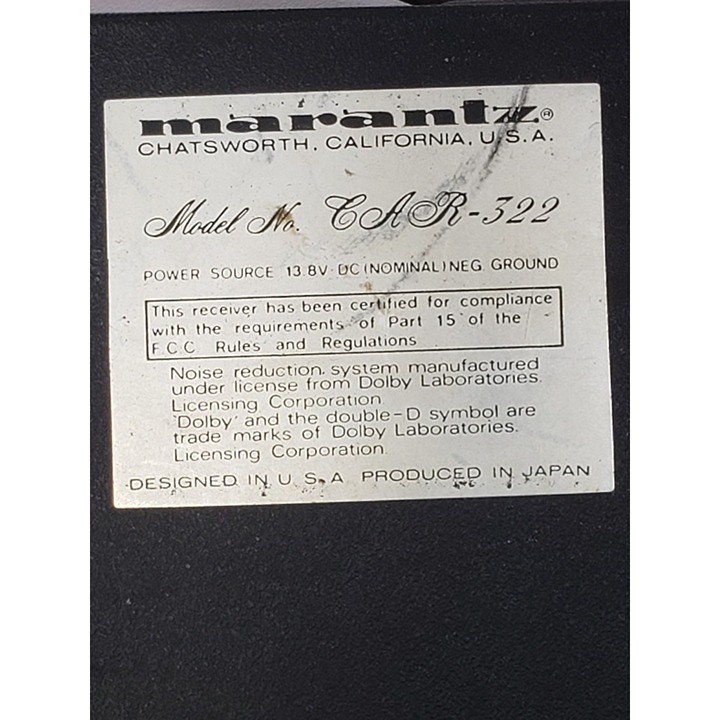 marantz®
CHATSWORTH, CALIFORNIA, U.S.A.
Model No. CAR-322
POWER SOURCE 13.8V DC (NOMINAL) NEG. GROUND
This receiver has been certified for compliance
with the requirements of Part 15 of the
F.C.C. Rules and Regulations
Noise reduction system manufactured
under license from Dolby Laboratories
Licensing Corporation
'Dolby' and the double-D symbol are
trade marks of Dolby Laboratories.
Licensing Corporation
DESIGNED IN U.S.A PRODUCED IN JAPAN